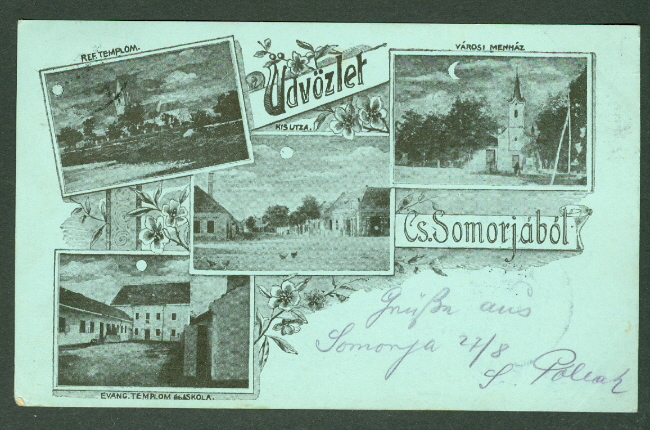 REF. TEMPLOM.
Üdvözlet
VÁROSI MENHÁZ
KIS UTZA.
Cs. Somorjából
EVANG. TEMPLOM és ISKOLA.
Grüße aus
Somorja 27/8
S. Pollak